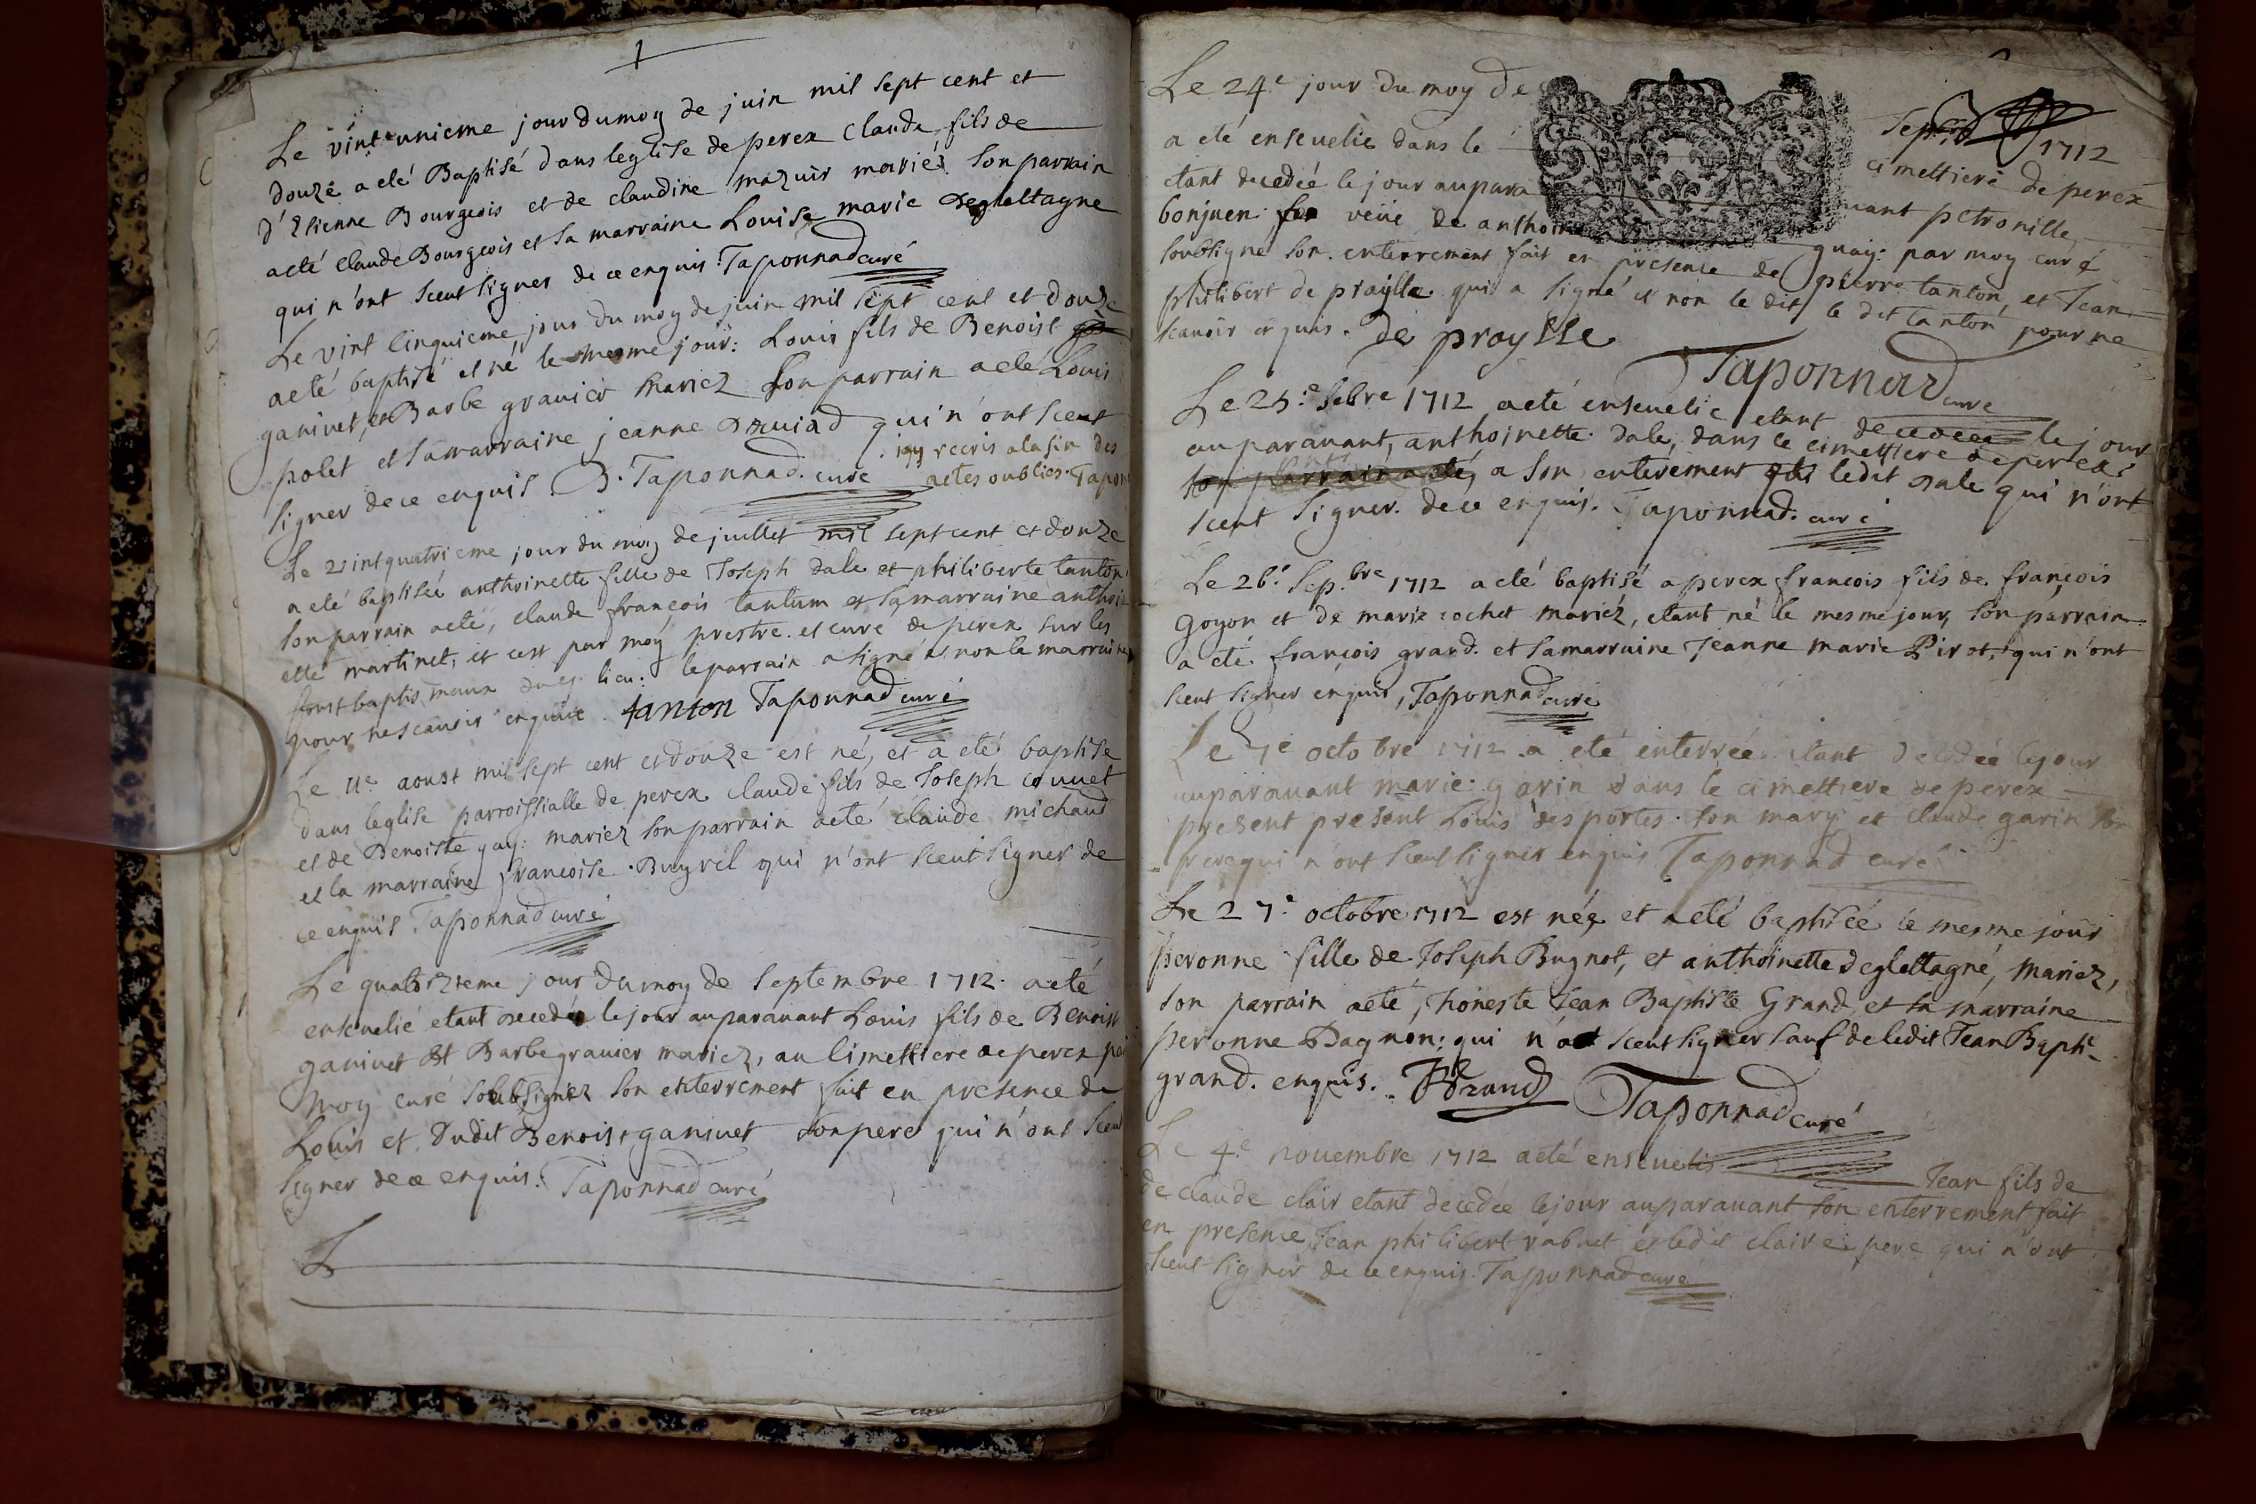 Le vint unieme jour du moy de juin mil sept cent et
douze a eté Baptisé dans leglise de perex Claude fils de
d'Etienne Bourgeois et de claudine mazuir mariéz son parrain
a eté claude Bourgeois et sa marraine Louise marie Deglettagne
qui n'ont sceut signer de ce enquis Taponnad curé
Le vint cinquieme jour du moy de juin mil sept cent et douze
a eté baptisé et né le mesme jour: Louis fils de Benoist
ganivet, et Barbe gravier mariez son parrain a eté Louis
polet et sa marraine jeanne qui n'ont sceut
signer de ce enquis Taponnad curé
recris a la fin des
actes oublies Tapon
Le vint quatrieme jour du moy de juillet mil sept cent et douze
a eté baptisée anthoinette fille de Joseph dale et philiberte tanton
son parrain a eté, claude françois tantum et sa marraine anthoi
ette martinet, et cest par moy prestre et curé de perex sur les
font baptis maux du lieu: le parrain a signé et non la marraine
pour ne scavoir enquise tanton Taponnad curé
Le 11e aoust mil sept cent et douze est né, et a eté baptisé
dans leglise parroissialle de perex claude fils de Joseph couvet
et de Benoiste gay: mariez son parrain a eté claude michaud
et la marraine francoise Buyrel qui n'ont sceut signer de
ce enquis Taponnad curé
Le quatorzieme jour du moy de septembre 1712 a eté
ensevelié etant decedée le jour auparavant Louis fils de Benoist
ganivet et Barbe gravier mariez, au cimettiere de perex par
moy curé soubsignez son enterrement fait en presence de
Louis et dudit Benoist ganivet son pere qui n'ont sceut
signer de ce enquis. Taponnad curé
Le 24e jour du moy de septbre 1712
a eté ensevelie dans le cimettiere de perex
etant decedée le jour auparavant petronille
bonjuen veüe de anthoine guay: par moy curé
soubsigné son enterrement fait en presence de pierre tanton, et Jean
philibert de praylle qui a signé et non le dit le dit tanton pour ne
scavoir enquis. de praylle
Taponnad curé
Le 25e 7bre 1712 a eté ensevelie etant decedée le jour
auparavant, anthoinette dale, dans le cimettiere de perex
son parrain a eté, a son enterement ledit dale qui n'ont
sceut signer de ce enquis. Taponnad curé
Le 26e Sep.bre 1712 a eté baptisé a perex francois fils de françois
goyon et de marie cochet mariéz, etant né le mesme jour, son parrain
a eté françois grand et sa marraine Jeanne marie Pirot, qui n'ont
sceut signer enquis, Taponnad curé
Le 7e octobre 1712 a eté enterrée etant decedée le jour
auparavant marie garin dans le cimettiere de perex
present present Louis des portes son mary et claude garin son
pere qui n'ont sceut signer enquis Taponnad curé
Le 27e octobre 1712 est née et a eté baptisée le mesme jour
peronne fille de Joseph Bugnot, et anthoinette deglettagne, mariez,
son parrain a eté, honeste Jean Baptiste Grand, et sa marraine
peronne Dagnon: qui n'ot sceut signer sauf de ledit Jean Bapt.
grand. enquis. JBGrand Taponnad curé
Le 4e novembre 1712 a eté ensevelis Jean fils de
de claude clair etant decedée le jour auparavant son enterrement fait
en presence Jean philibert rabuet et ledit clair pere qui n'ont
sceut signer de ce enquis Taponnad curé